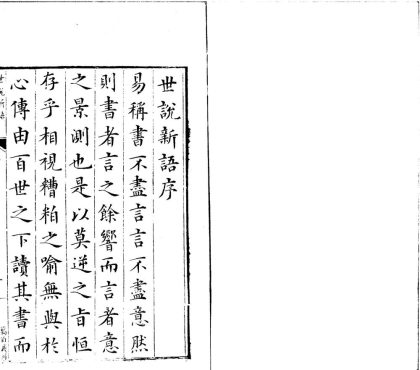 世說新語序
易稱書不盡言言不盡意然
則書者言之餘響而言者意
之景測也是以莫逆之旨恒
存乎相視糟粕之喻無與於
心傳由百世之下讀其書而